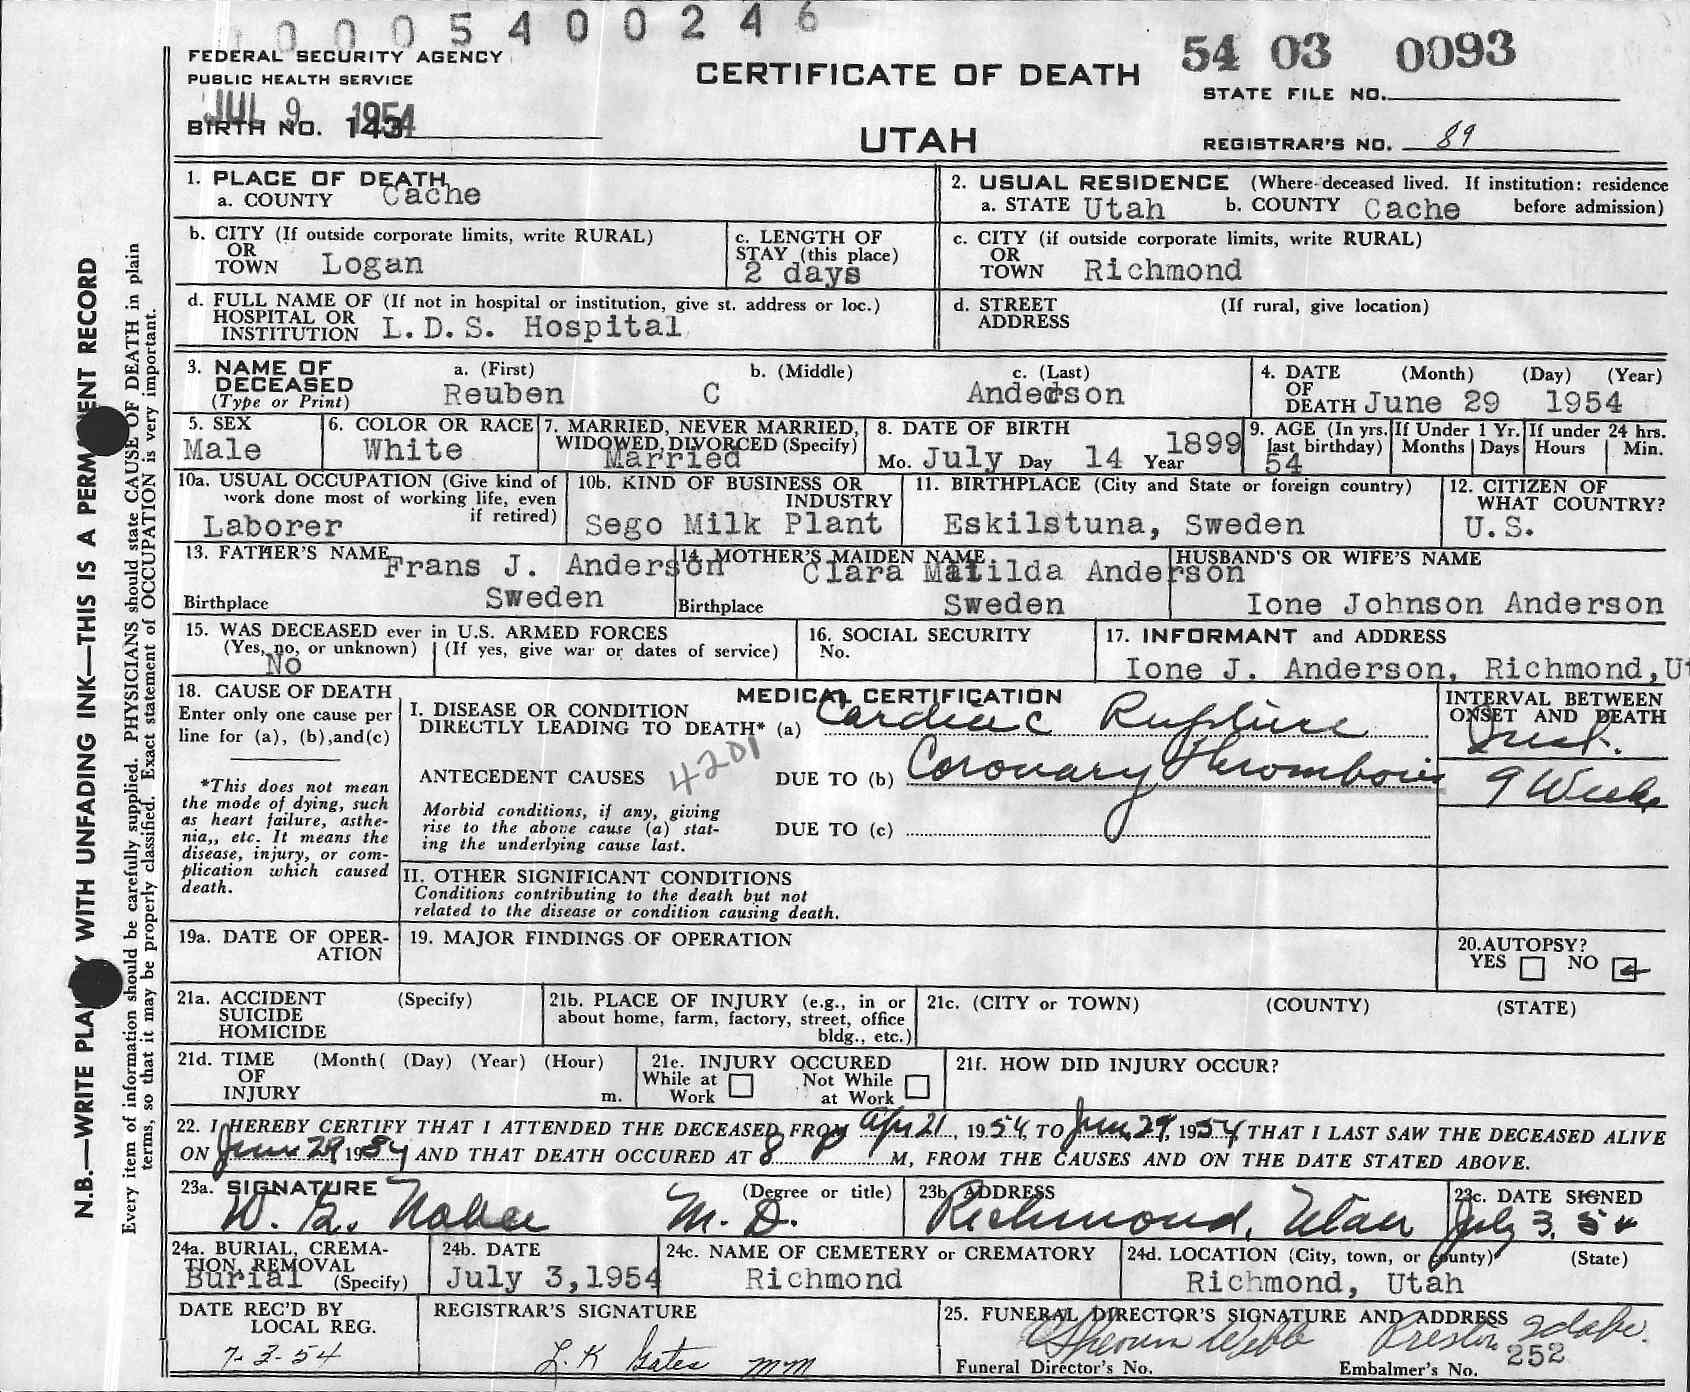 0005400246
FEDERAL SECURITY AGENCY
PUBLIC HEALTH SERVICE
JUL 9 1954
BIRTH NO. 143
CERTIFICATE OF DEATH
UTAH
54 03 0093
STATE FILE NO.
REGISTRAR'S NO. 89
N.B.—WRITE PLA WITH UNFADING INK—THIS IS A PERM ENT RECORD
Every item of information should be carefully supplied. PHYSICIANS should state CAUSE OF DEATH in plain
terms, so that it may be properly classified. Exact statement of OCCUPATION is very important.
1. PLACE OF DEATH
a. COUNTY Cache
2. USUAL RESIDENCE (Where deceased lived. If institution: residence
a. STATE Utah b. COUNTY Cache before admission)
b. CITY (If outside corporate limits, write RURAL)
OR
TOWN Logan
c. LENGTH OF
STAY (this place)
2 days
c. CITY (if outside corporate limits, write RURAL)
OR
TOWN Richmond
d. FULL NAME OF (If not in hospital or institution, give st. address or loc.)
HOSPITAL OR
INSTITUTION L.D.S. Hospital
d. STREET (If rural, give location)
ADDRESS
3. NAME OF
DECEASED
(Type or Print)
a. (First) b. (Middle) c. (Last)
Reuben C Anderson
4. DATE (Month) (Day) (Year)
OF
DEATH June 29 1954
5. SEX
Male
6. COLOR OR RACE
White
7. MARRIED, NEVER MARRIED,
WIDOWED, DIVORCED (Specify)
Married
8. DATE OF BIRTH
Mo. July Day 14 Year 1899
9. AGE (In yrs.
last birthday)
54
If Under 1 Yr.
Months Days
If under 24 hrs.
Hours Min.
10a. USUAL OCCUPATION (Give kind of
work done most of working life, even
if retired)
Laborer
10b. KIND OF BUSINESS OR
INDUSTRY
Sego Milk Plant
11. BIRTHPLACE (City and State or foreign country)
Eskilstuna, Sweden
12. CITIZEN OF
WHAT COUNTRY?
U.S.
13. FATHER'S NAME Frans J. Anderson
Birthplace Sweden
14. MOTHER'S MAIDEN NAME
Clara Matilda Anderson
Birthplace Sweden
HUSBAND'S OR WIFE'S NAME
Ione Johnson Anderson
15. WAS DECEASED ever in U.S. ARMED FORCES
(Yes, no, or unknown) (If yes, give war or dates of service)
No
16. SOCIAL SECURITY
No.
17. INFORMANT and ADDRESS
Ione J. Anderson, Richmond,Ut
18. CAUSE OF DEATH
Enter only one cause per
line for (a), (b),and(c)
*This does not mean
the mode of dying, such
as heart failure, asthe-
nia,, etc. It means the
disease, injury, or com-
plication which caused
death.
MEDICAL CERTIFICATION
I. DISEASE OR CONDITION
DIRECTLY LEADING TO DEATH* (a) Cardiac Rupture
ANTECEDENT CAUSES 4201 DUE TO (b) Coronary Thrombosis
Morbid conditions, if any, giving
rise to the above cause (a) stat-
ing the underlying cause last.
DUE TO (c)
INTERVAL BETWEEN
ONSET AND DEATH
Inst.
9 Weeks
II. OTHER SIGNIFICANT CONDITIONS
Conditions contributing to the death but not
related to the disease or condition causing death.
19a. DATE OF OPER-
ATION
19. MAJOR FINDINGS OF OPERATION
20.AUTOPSY?
YES NO
21a. ACCIDENT (Specify)
SUICIDE
HOMICIDE
21b. PLACE OF INJURY (e.g., in or
about home, farm, factory, street, office
bldg., etc.)
21c. (CITY or TOWN) (COUNTY) (STATE)
21d. TIME (Month( (Day) (Year) (Hour)
OF
INJURY m.
21e. INJURY OCCURED
While at Not While
Work at Work
21f. HOW DID INJURY OCCUR?
22. I HEREBY CERTIFY THAT I ATTENDED THE DECEASED FROM Apr 21, 1954, TO June 29, 1954, THAT I LAST SAW THE DECEASED ALIVE
ON June 29 1954 AND THAT DEATH OCCURED AT 8 P M, FROM THE CAUSES AND ON THE DATE STATED ABOVE.
23a. SIGNATURE (Degree or title)
W. M.D.
23b. ADDRESS
Richmond, Utah
23c. DATE SIGNED
July 3, 54
24a. BURIAL, CREMA-
TION, REMOVAL
Burial (Specify)
24b. DATE
July 3,1954
24c. NAME OF CEMETERY or CREMATORY
Richmond
24d. LOCATION (City, town, or county) (State)
Richmond, Utah
DATE REC'D BY
LOCAL REG.
7-3-54
REGISTRAR'S SIGNATURE
L.K Gates mm
25. FUNERAL DIRECTOR'S SIGNATURE AND ADDRESS
Webb Preston Idaho.
Funeral Director's No. Embalmer's No. 252